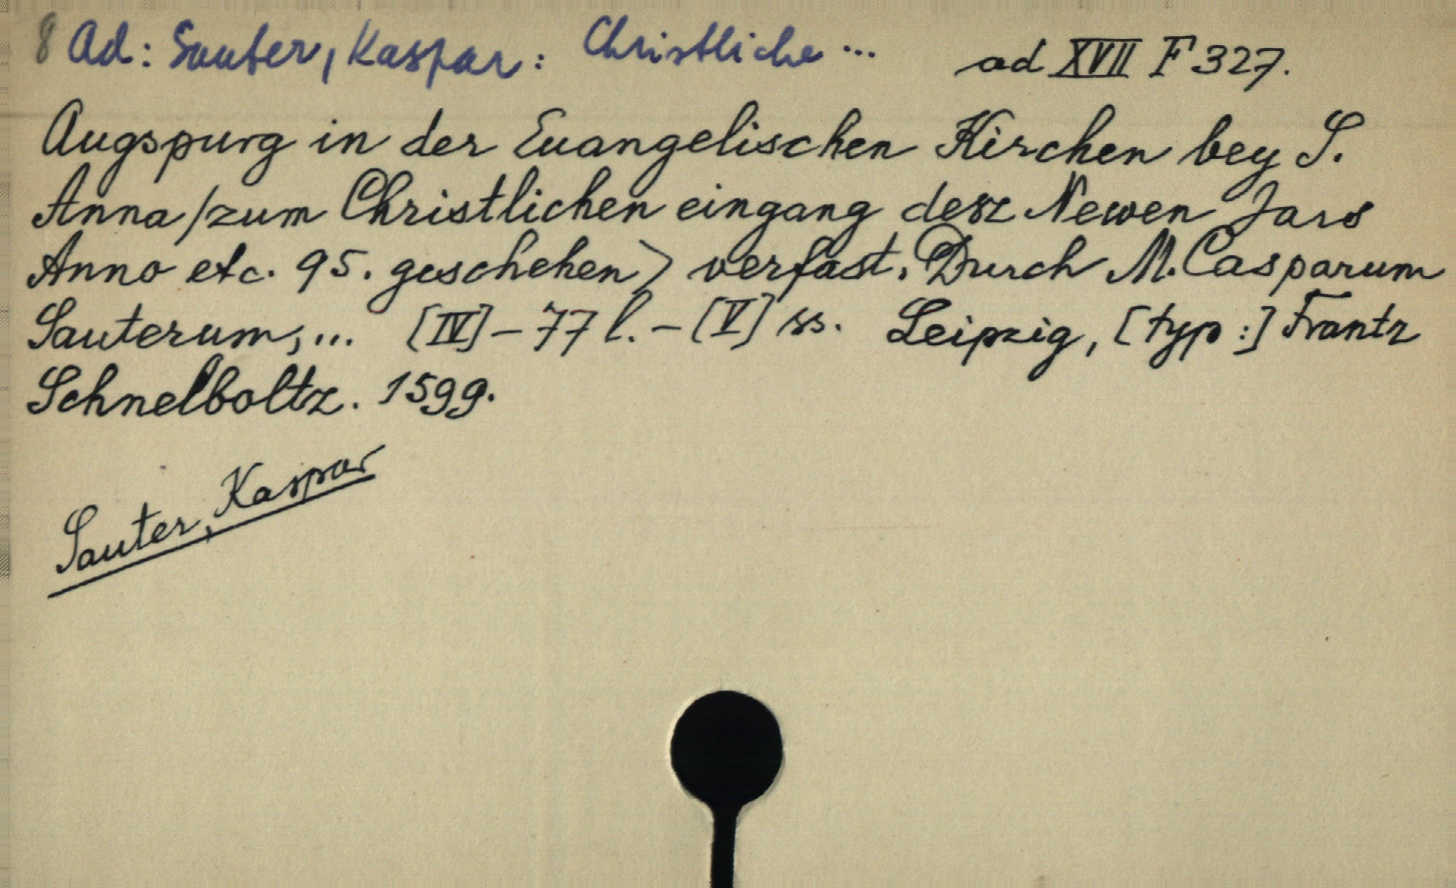 8 Ad: Sauter, Kaspar: Christliche ... ad XVII F 327.
Augspurg in der Euangelischen Kirchen bey S.
Anna / zum Christlichen eingang desz Newen Jars
Anno etc. 95. geschehen) verfast. Durch M. Casparum
Sauterum, ... [IV] - 77 l. - [V] ss. Leipzig, [typ:] Frantz
Schnelboltz. 1599.
Sauter, Kaspar